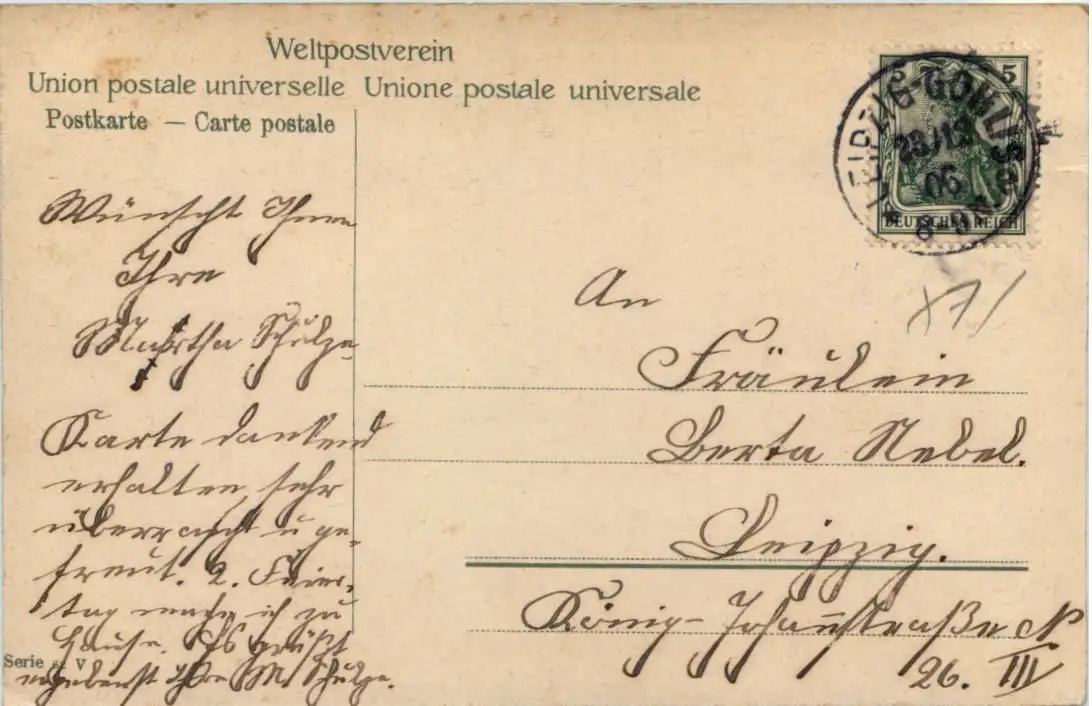 Weltpostverein
Union postale universelle Unione postale universale
Postkarte — Carte postale
DEUTSCHES REICH
5
5
LEIPZIG-GOHLIS
23/12
06
Wünscht Ihnen
Ihre
Martha Schulze
Karte dankend
erhalten, sehr
überrascht u ge-
freut. 2. Feier-
tag mache ich zu
Hause. Es grüßt
ergebenst Ihre M. Schulze.
An
Fräulein
Berta Nebel.
Leipzig.
König-Johannstraße N
26. III
Serie V